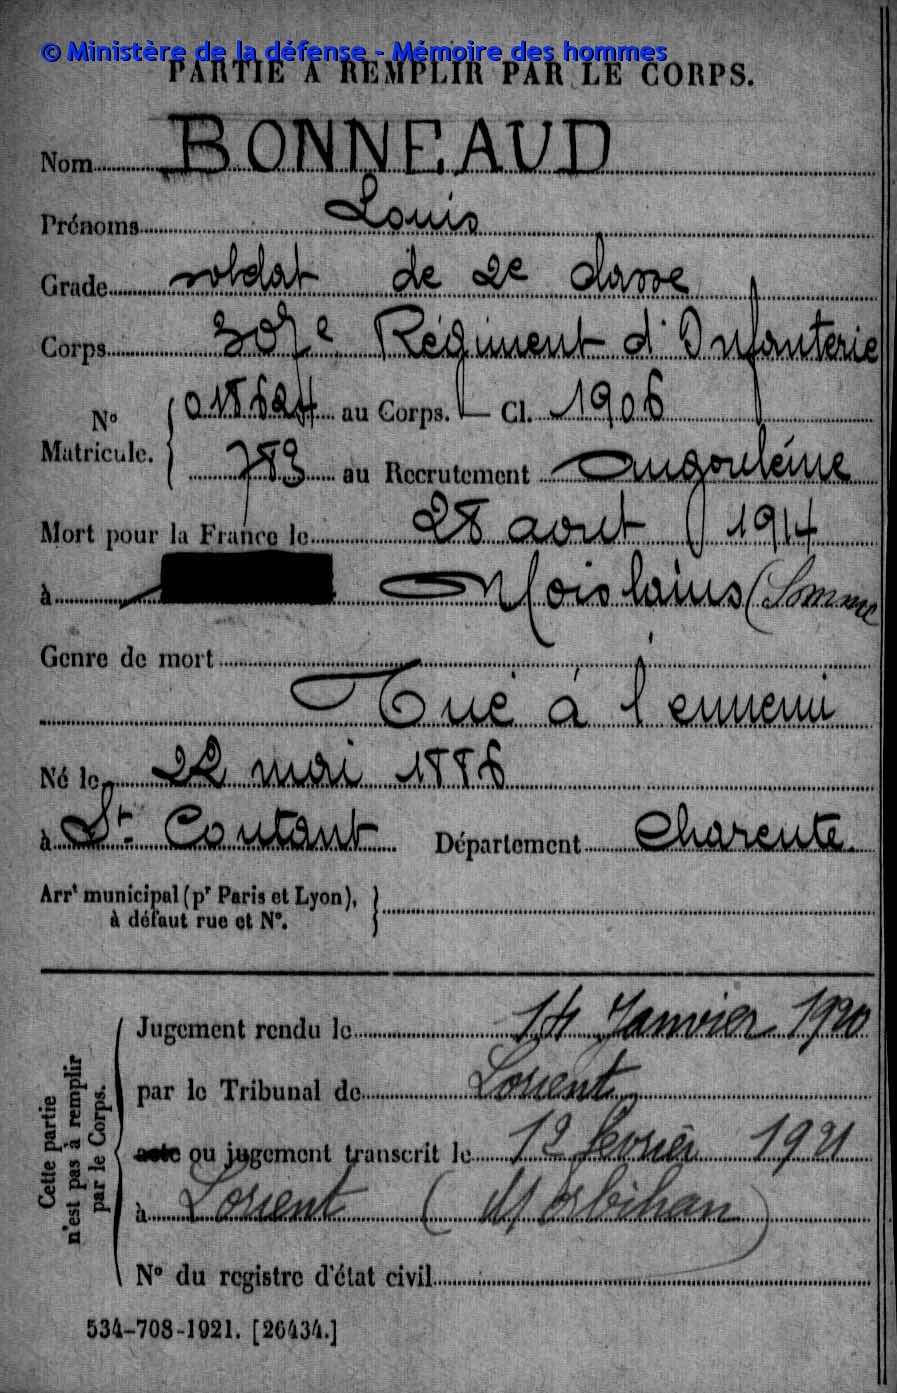 © Ministère de la défense - Mémoire des hommes
PARTIE A REMPLIR PAR LE CORPS.
Nom BONNEAUD
Prénoms Louis
Grade soldat de 2e classe
Corps 307e Régiment d'Infanterie
N° Matricule. { 018624 au Corps. — Cl. 1906
783 au Recrutement Angoulême
Mort pour la France le 28 aout 1914
à Moislains (Somme
Genre de mort
Tué à l'ennemi
Né le 22 mai 1886
à St. Coutant Département Charente
Arrt municipal (pr Paris et Lyon),
à défaut rue et N°. }
Cette partie
n'est pas à remplir
par le Corps.
Jugement rendu le 14 Janvier 1920
par le Tribunal de Lorient
acte ou jugement transcrit le février 1921
à Lorient (Morbihan)
N° du registre d'état civil
534-708-1921. [26434.]